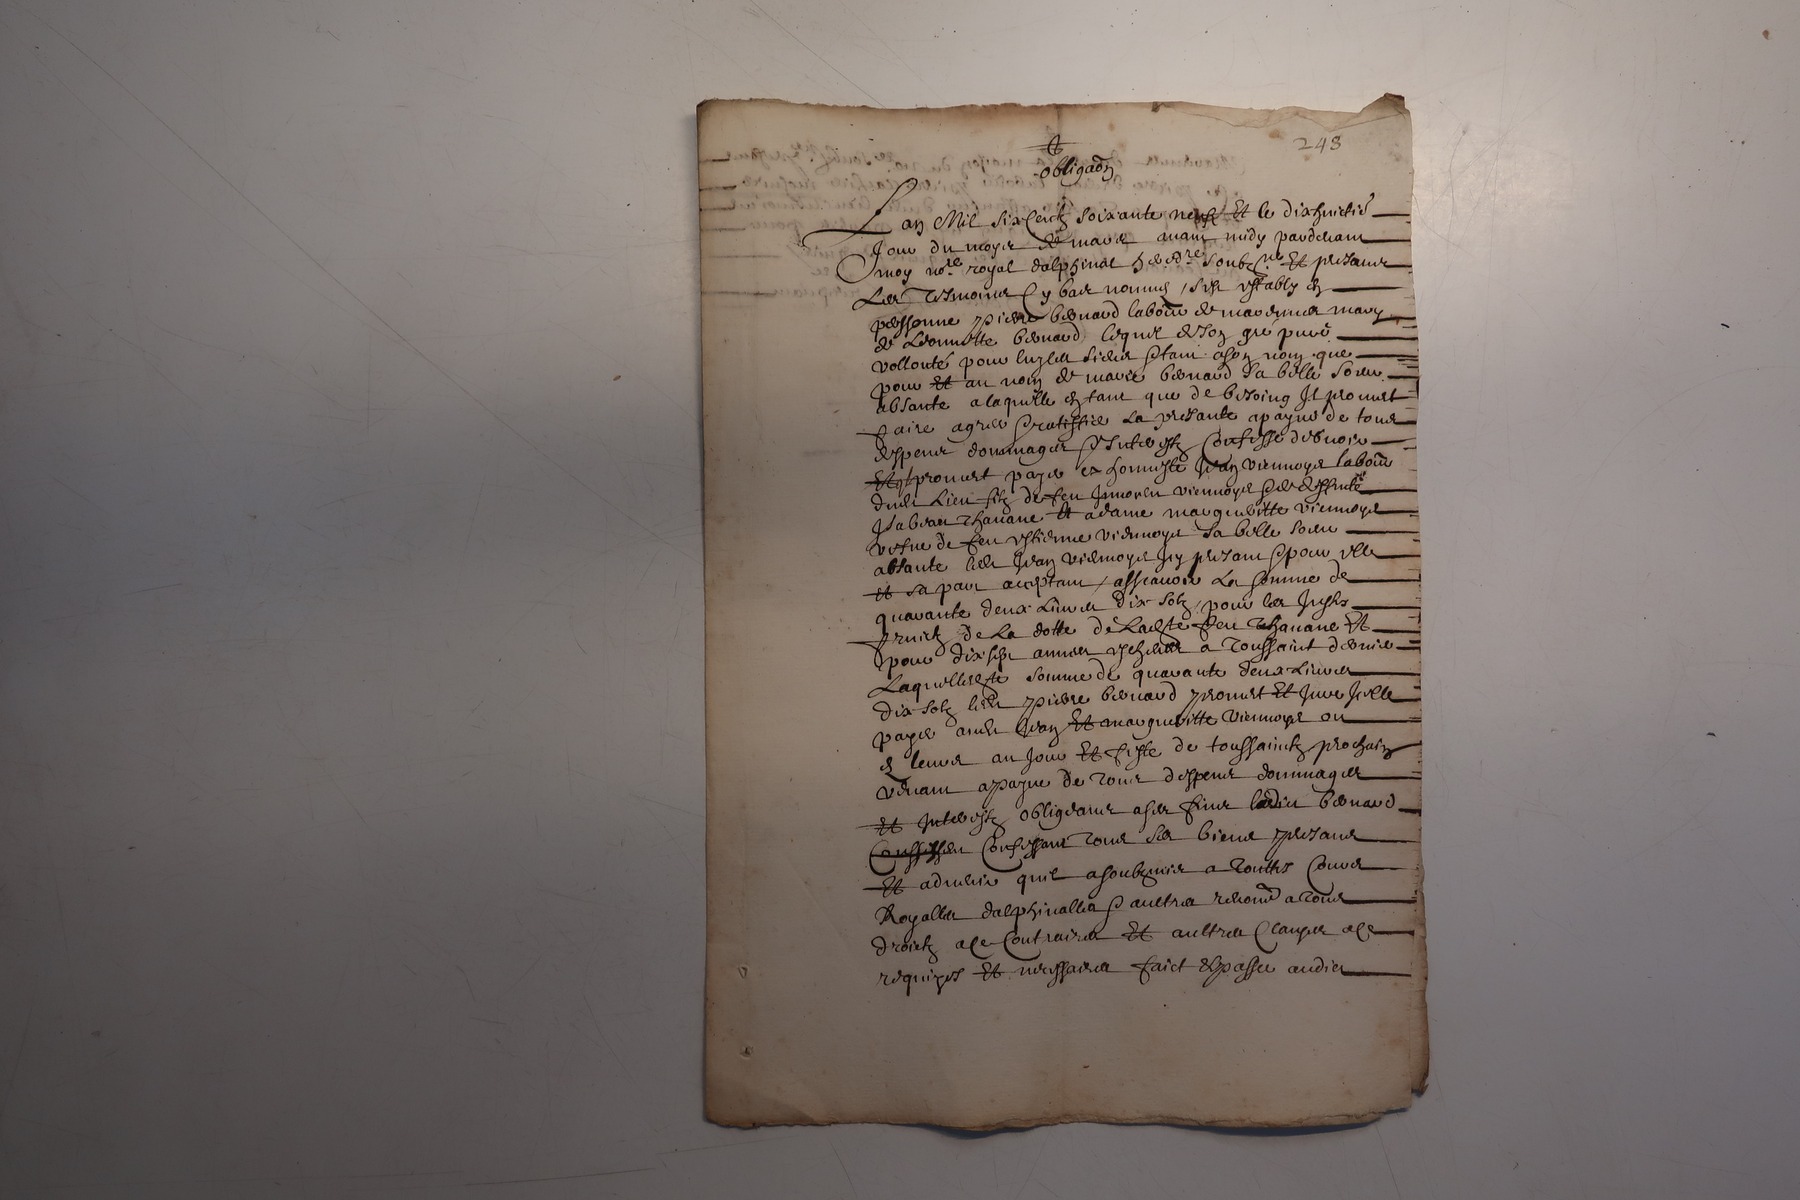 248
obligaōn
Lan Mil six Centz soixante neuf Et le dixhuictie
Jour du moys de mars avant midy pardevant
moy nore royal dalphinal hereddre soubzne Et presans
Les tesmoins Cy bas nommes, sest estably en
personne pierre bernard labour de
de bernard lequel de son gre pure
vollonte pour luy que
pour Et au nom de marie bernard sa belle soeur
absante a laquelle en tant que de besoing Jl promet
faire agreer ratiffier La presante a payne de tous
despens dommages Jnterestz Confesse debvoir
Et promet payer a honneste Jean viennoys labour
dudit Lieu filz de feu viennoys
Jsabeau thanane Et a dame margueritte viennoys
vefve de feu estienne viennoys sa belle soeur
absante ledit Jean viennoys Jcy presant pour elle
Et sa part acceptant, assavoir La somme de
quarante deux Livres dix solz, pour les
fruictz de La dotte de Ladte feu thanane Et
pour dix sept annees a toussaint dernier
Laquelle dte somme de quarante deux Livres
dix solz ledit pierre bernard promet Et Jure Jcelle
payer audit Jean Et margueritte viennoys ou
es leurs au Jour Et feste de toussainctz prochain
venant a payne de tous despens dommages
Et Jnterestz obligeant a ses fins ledict bernard
Confessant tous ses biens presans
Et advenir quil a soubzmis a touttes Cours
Royalles dalphinalles aultres renonce a tous
droictz a ce Contraires Et aultres Clauzes a ce
requizes Et necessaires faict passe audict